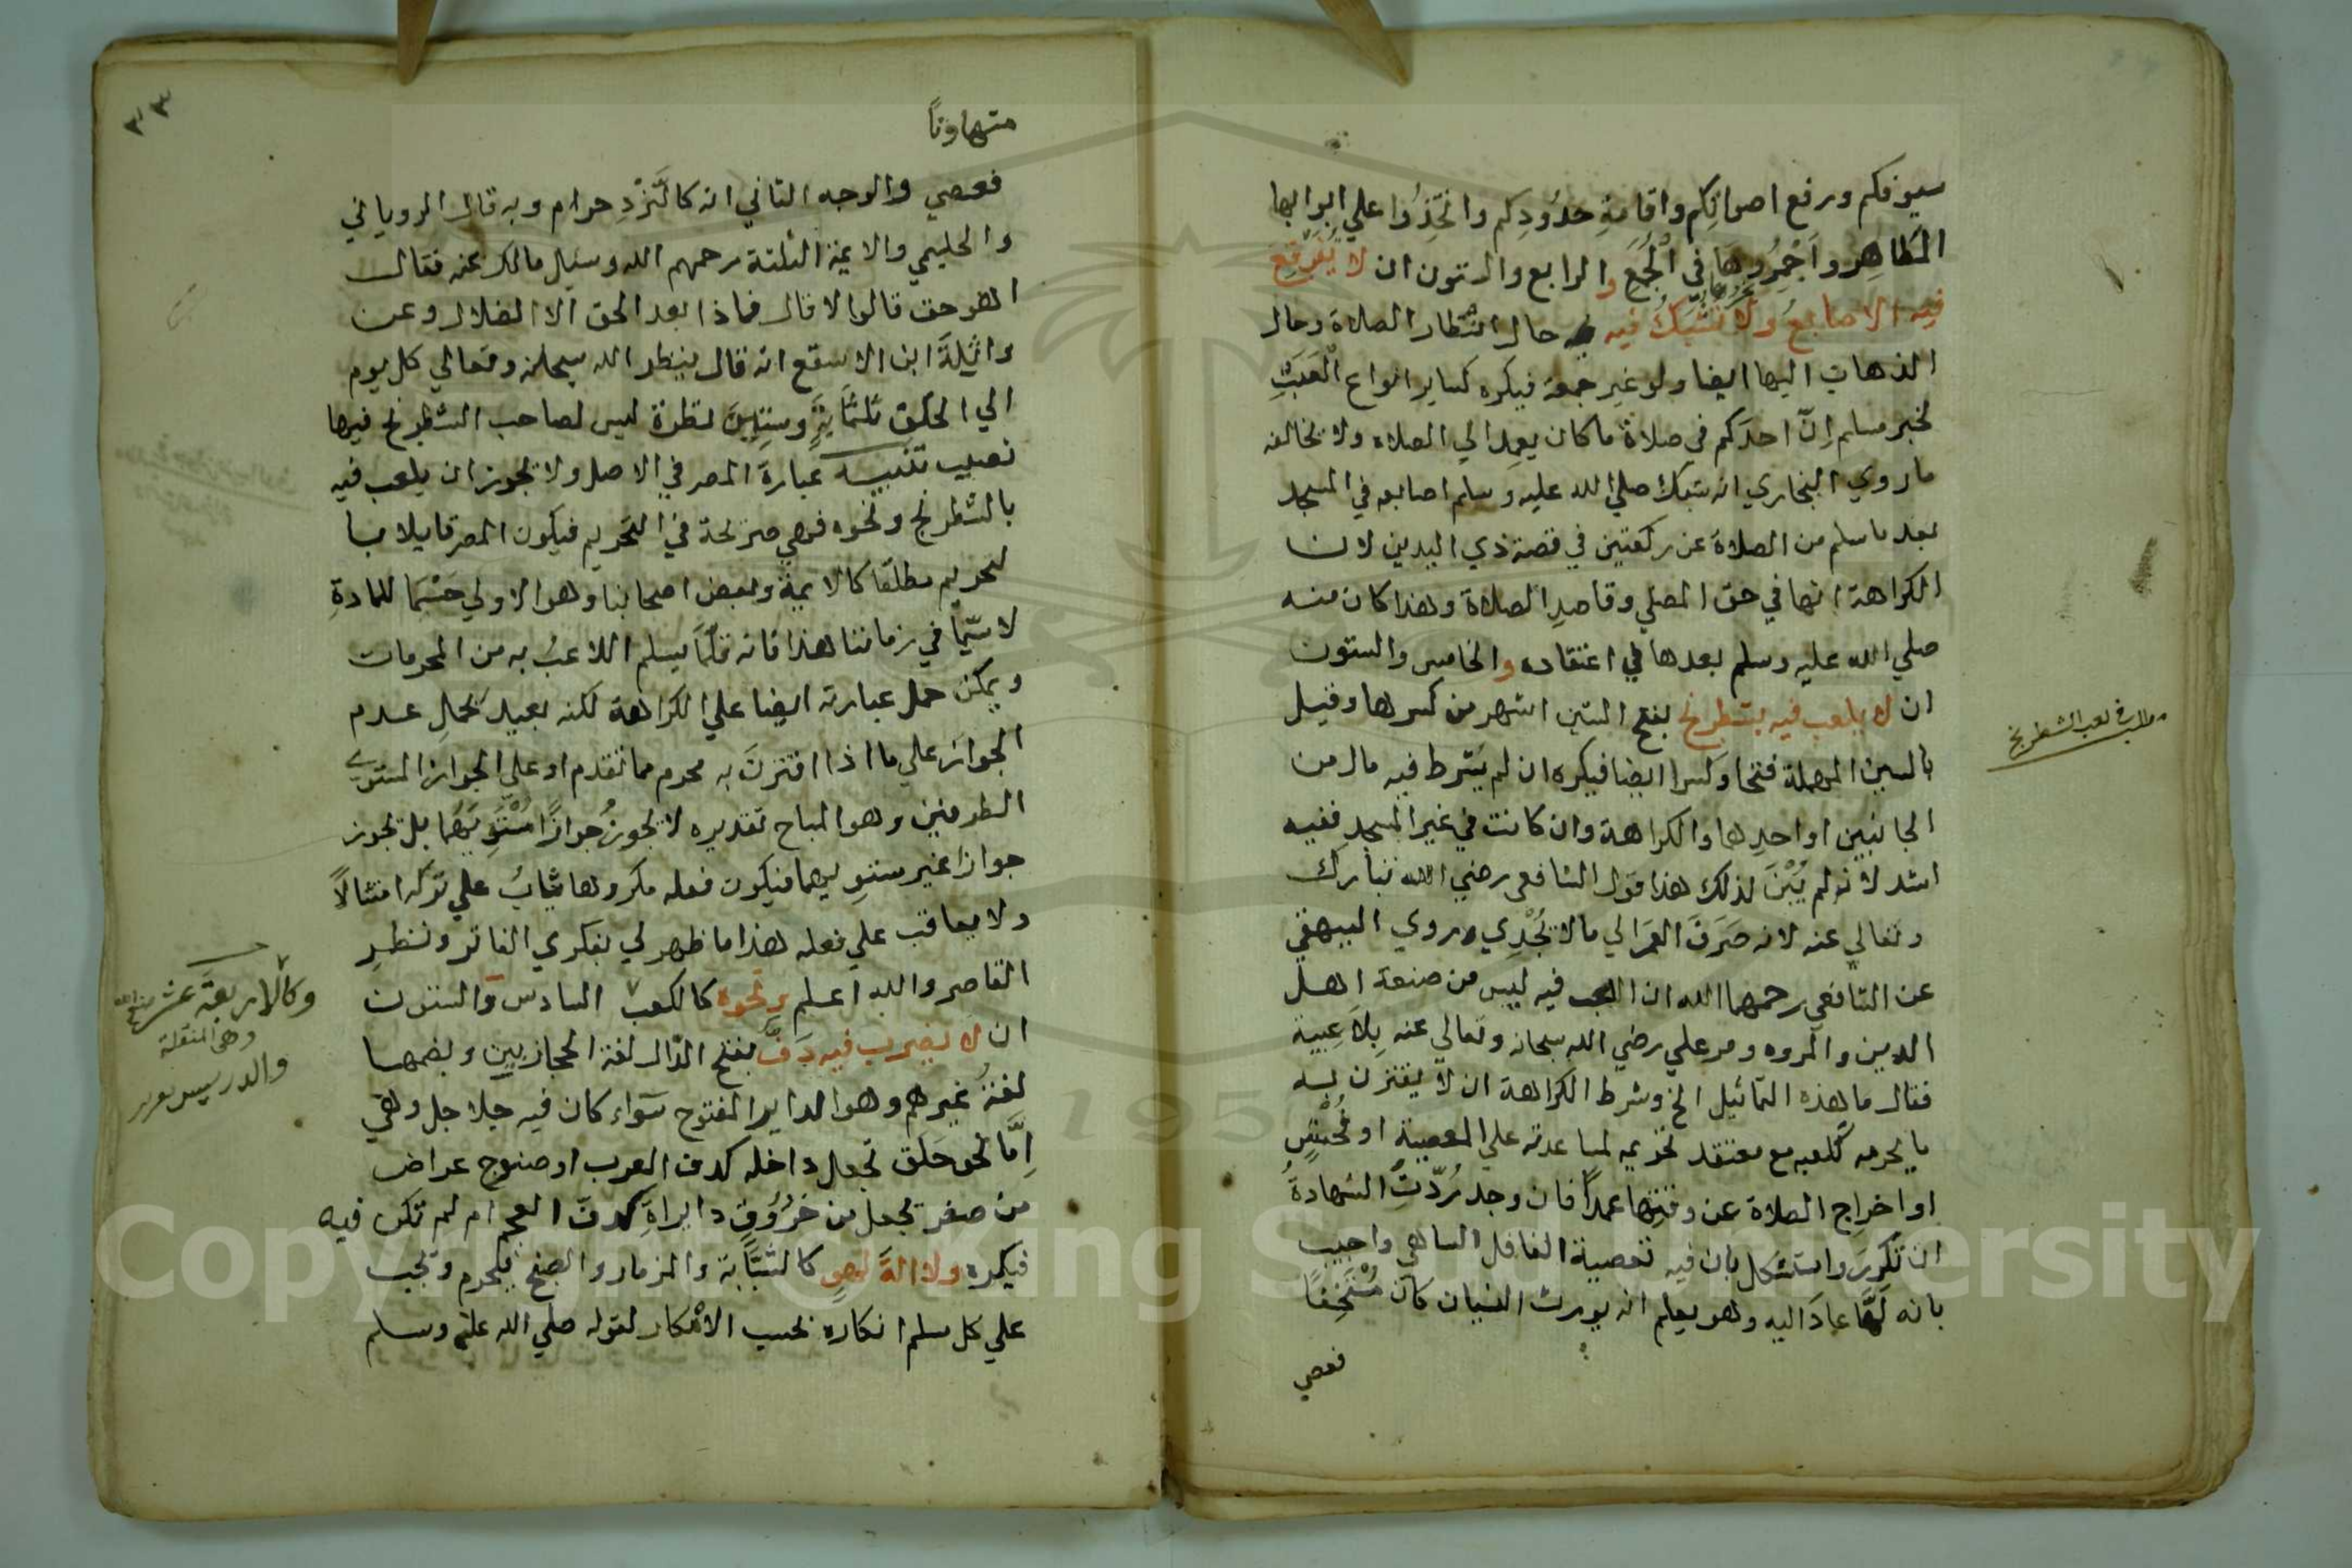 سيوفكم ورفع اصواتكم واقامةِ حدُودِكم واتّخِذُوا علي ابوابها
المَطاهِر واَجْمِرُوهَا في الْجُمَعِ والرابع والستون ان لا يُفَرْقِعَ
فيه الاصابعُ ولا تُشَبَّكُ فيه حال انتظار الصلاة وحال
الذهاب اليها ايضا ولو غير جمعة فيكره كساير انواع الْعَبَثِ
لخبر مسلم اِنّ احدَكم في صلاة ما كان يعمِد الي الصلاه ولا يخالفه
ما روي البخاري انه شبك صلي الله عليه وسلم اصابعه في المسجد
بعد ما سلم من الصلاة عن ركعتين في قصة ذي اليدين لان
الكراهة انها في حق المصلي وقاصدِ الصلاة وهذا كان منه
صلي الله عليه وسلم بعدها في اعتقاده والخامس والستون
ان لا يلعب فيه بشطرنج بفتح الشين اشهر من كسرها وقيل
بالسين المهملة فتحا وكسرا ايضا فيكره ان لم يشرط فيه مال من
الجانبين او احدِها والكراهة وان كانت في غير المسجد ففيه
اشد لانه لم يُبْنَ لذلك هذا قول الشافعي رضي الله تبارك
وتعالي عنه لانه صَرَفَ العمَرَ الي ما لا يُجْدِي وروي البيهقي
عن الشافعي رحمهما الله ان اللعب فيه ليس من صنعة اهل
الدين والمروه ومر علي رضي الله سبحانه وتعالي عنه بِلاَعِبيه
فقال ما هذه التماثيل الخ وشرط الكراهة ان لا يقترن به
ما يحرمه كلعبه مع معتقد تحريمه لمساعدته علي المعصية او فُحْشٍ
او اخراج الصلاة عن وقتِها عمدًا فان وجد رُدّتْ الشهادةُ
ان تكرر واستشكل بان فيه تعصية الغافل الساهي واجيب
بانه لَمَّا عادَ اليه وهو يعلم انه يورث النسيان كان مُسْتَخِفًا
فعصي
ملا في لعب الشطرنج
٣٣
متهاونًا
فعصي والوجه الثاني انه كالنَّرْدِ حرام وبه قال الروياني
والحليمي والايمة الثلثة رحمهم الله وسيل مالك عنه فقال
اهو حق قالوا لا قال فماذا بعد الحق الا الضلال وعن
واثِلةَ ابن الاسقع انه قال ينظر الله سبحنه وتعالي كل يوم
الي الخلق ثلثماية وستين نظرة ليس لصاحب الشطرنج فيها
نصيب تنبيه عبارة المص في الاصل ولا يجوز ان يلعب فيه
بالشطرنج ونحوه فهي صريحة في التحريم فيكون المص قايلا با
لتحريم مطلقا كالايمة وبعض اصحابنا وهو الاولي حَسْمًا للمادةِ
لا سيّما في زماننا هذا فانه قلّمَا يسلم اللاعبُ به من المحرمات
ويمكن حمل عبارته ايضا علي الكراهة لكنه بعيد بحملِ عدم
الجواز علي ما اذا اقترنَ به محرم مما تقدم او علي الجواز المستوي
الطرفين وهو المباح تقديره لا يجوزُ جوازًا مُسْتَوِيَهُما بل يجوز
جوازا غير مستويهما فيكون فعله مكروها يثابُ علي تركه امتثالاً
ولا يعاقب علي فعله هذا ما ظهر لي بفكري الفاتر ونظرِ
القاصر والله اعلم ونحوه كالكعب السادس والستون
ان لا يضرب فيه دَفّ بفتح الدّال لغة الحجازيين وبضمها
لغة غيرهم وهو الداير المفتوح سَواء كان فيه جلاجل وهي
اِمّا نحو حَلَق تجعل داخله كدف العرب او صنوج عراض
من صفر تجعل من خُرُوق دايراةِ كدفّ العجم ام لم تكن فيه
فيكره ولا الةَ لهوٍ كالشبّابة والمزمار والصنج فيحرم ويجب
علي كل مسلم انكاره بحسب الامكار لقوله صلي الله عليه وسلم
وكالاربعة عشر
وهي المنقلة
والدريس